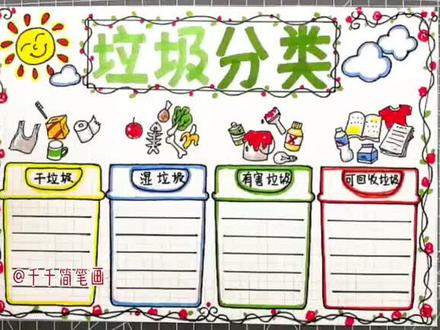 垃圾分类
干垃圾
湿垃圾
有害垃圾
可回收垃圾
@千千简笔画